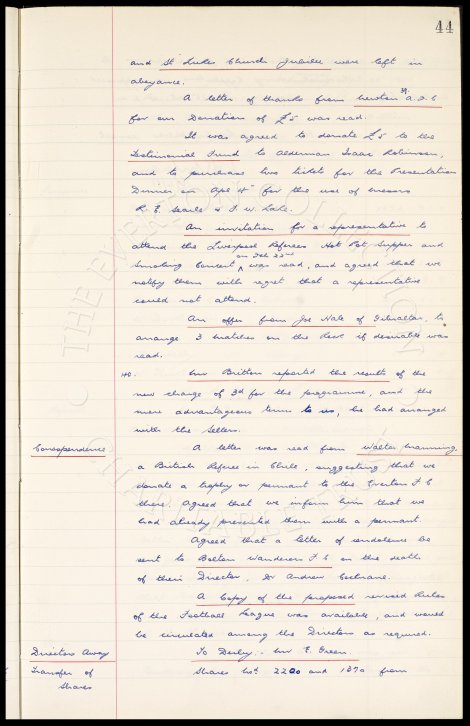 44
and St Lukes Church Jubilee were left in
abeyance.
A letter of thanks from Newton A.F.C
for our Donation of £5 was read.
It was agreed to donate £5 to the
Testimonial Fund to Alderman Isaac Robinson,
and to purchase two tickets for the Presentation
Dinner on Apl 4th for the use of messrs
R. E. Searle & F. W. Lake.
An invitation for a representative to
attend the Liverpool Referees Hot Pot Supper and
on Feb 22nd
Smoking Concert ^ was read, and agreed that we
notify them with regret that a representative
could not attend.
An offer from Joe Hale of Gibraltar, to
arrange 3 matches on the Rock if desirable was
read.
Mr Britton reported the results of the
new charge of 3d for the programme, and the
more advantageous terms to us, he had arranged
with the Sellers.
Correspondence
A letter was read from Walter Manning,
a British Referee in Chile, suggesting that we
donate a trophy or pennant to the Everton F C
there. Agreed that we inform him that we
had already presented them with a pennant.
Agreed that a letter of condolence be
sent to Bolton Wanderers F C on the death
of their Director, Dr Andrew Cochrane.
A Copy of the proposed revised Rules
of the Football League was available, and would
be circulated among the Directors as required.
Directors Away
To Derby, - Mr E. Green.
Transfer of
Shares
Shares Nos. 2200 and 1870 from
THE EVERTON COLLECTION
CHARITABLE TRUST